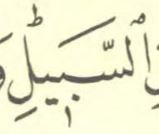 ٱلسَّبِيلِ